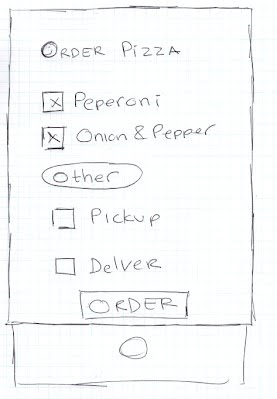 ORDER PIZZA
Peperoni
Onion & Pepper
Other
Pickup
Delver
ORDER